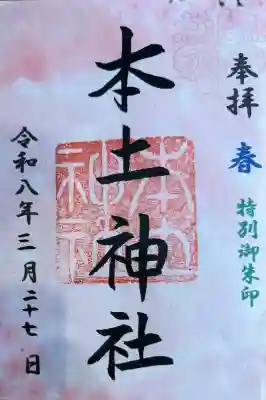 奉拝 春 特別御朱印
本土神社
令和八年三月二十七日
本土神社